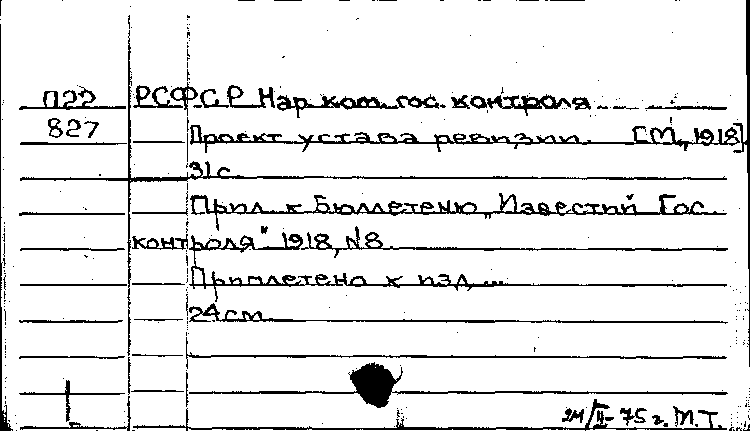 П22 РСФСР Нар. ком. гос. контроля
827 Проект устава ревизии. [М., 1918].
31 с.
Прил. к Бюллетеню „Известий Гос.
контроля" 1918, №8.
Приплетено к изд. ...
24 см.
24/II-75 г. М.Т.